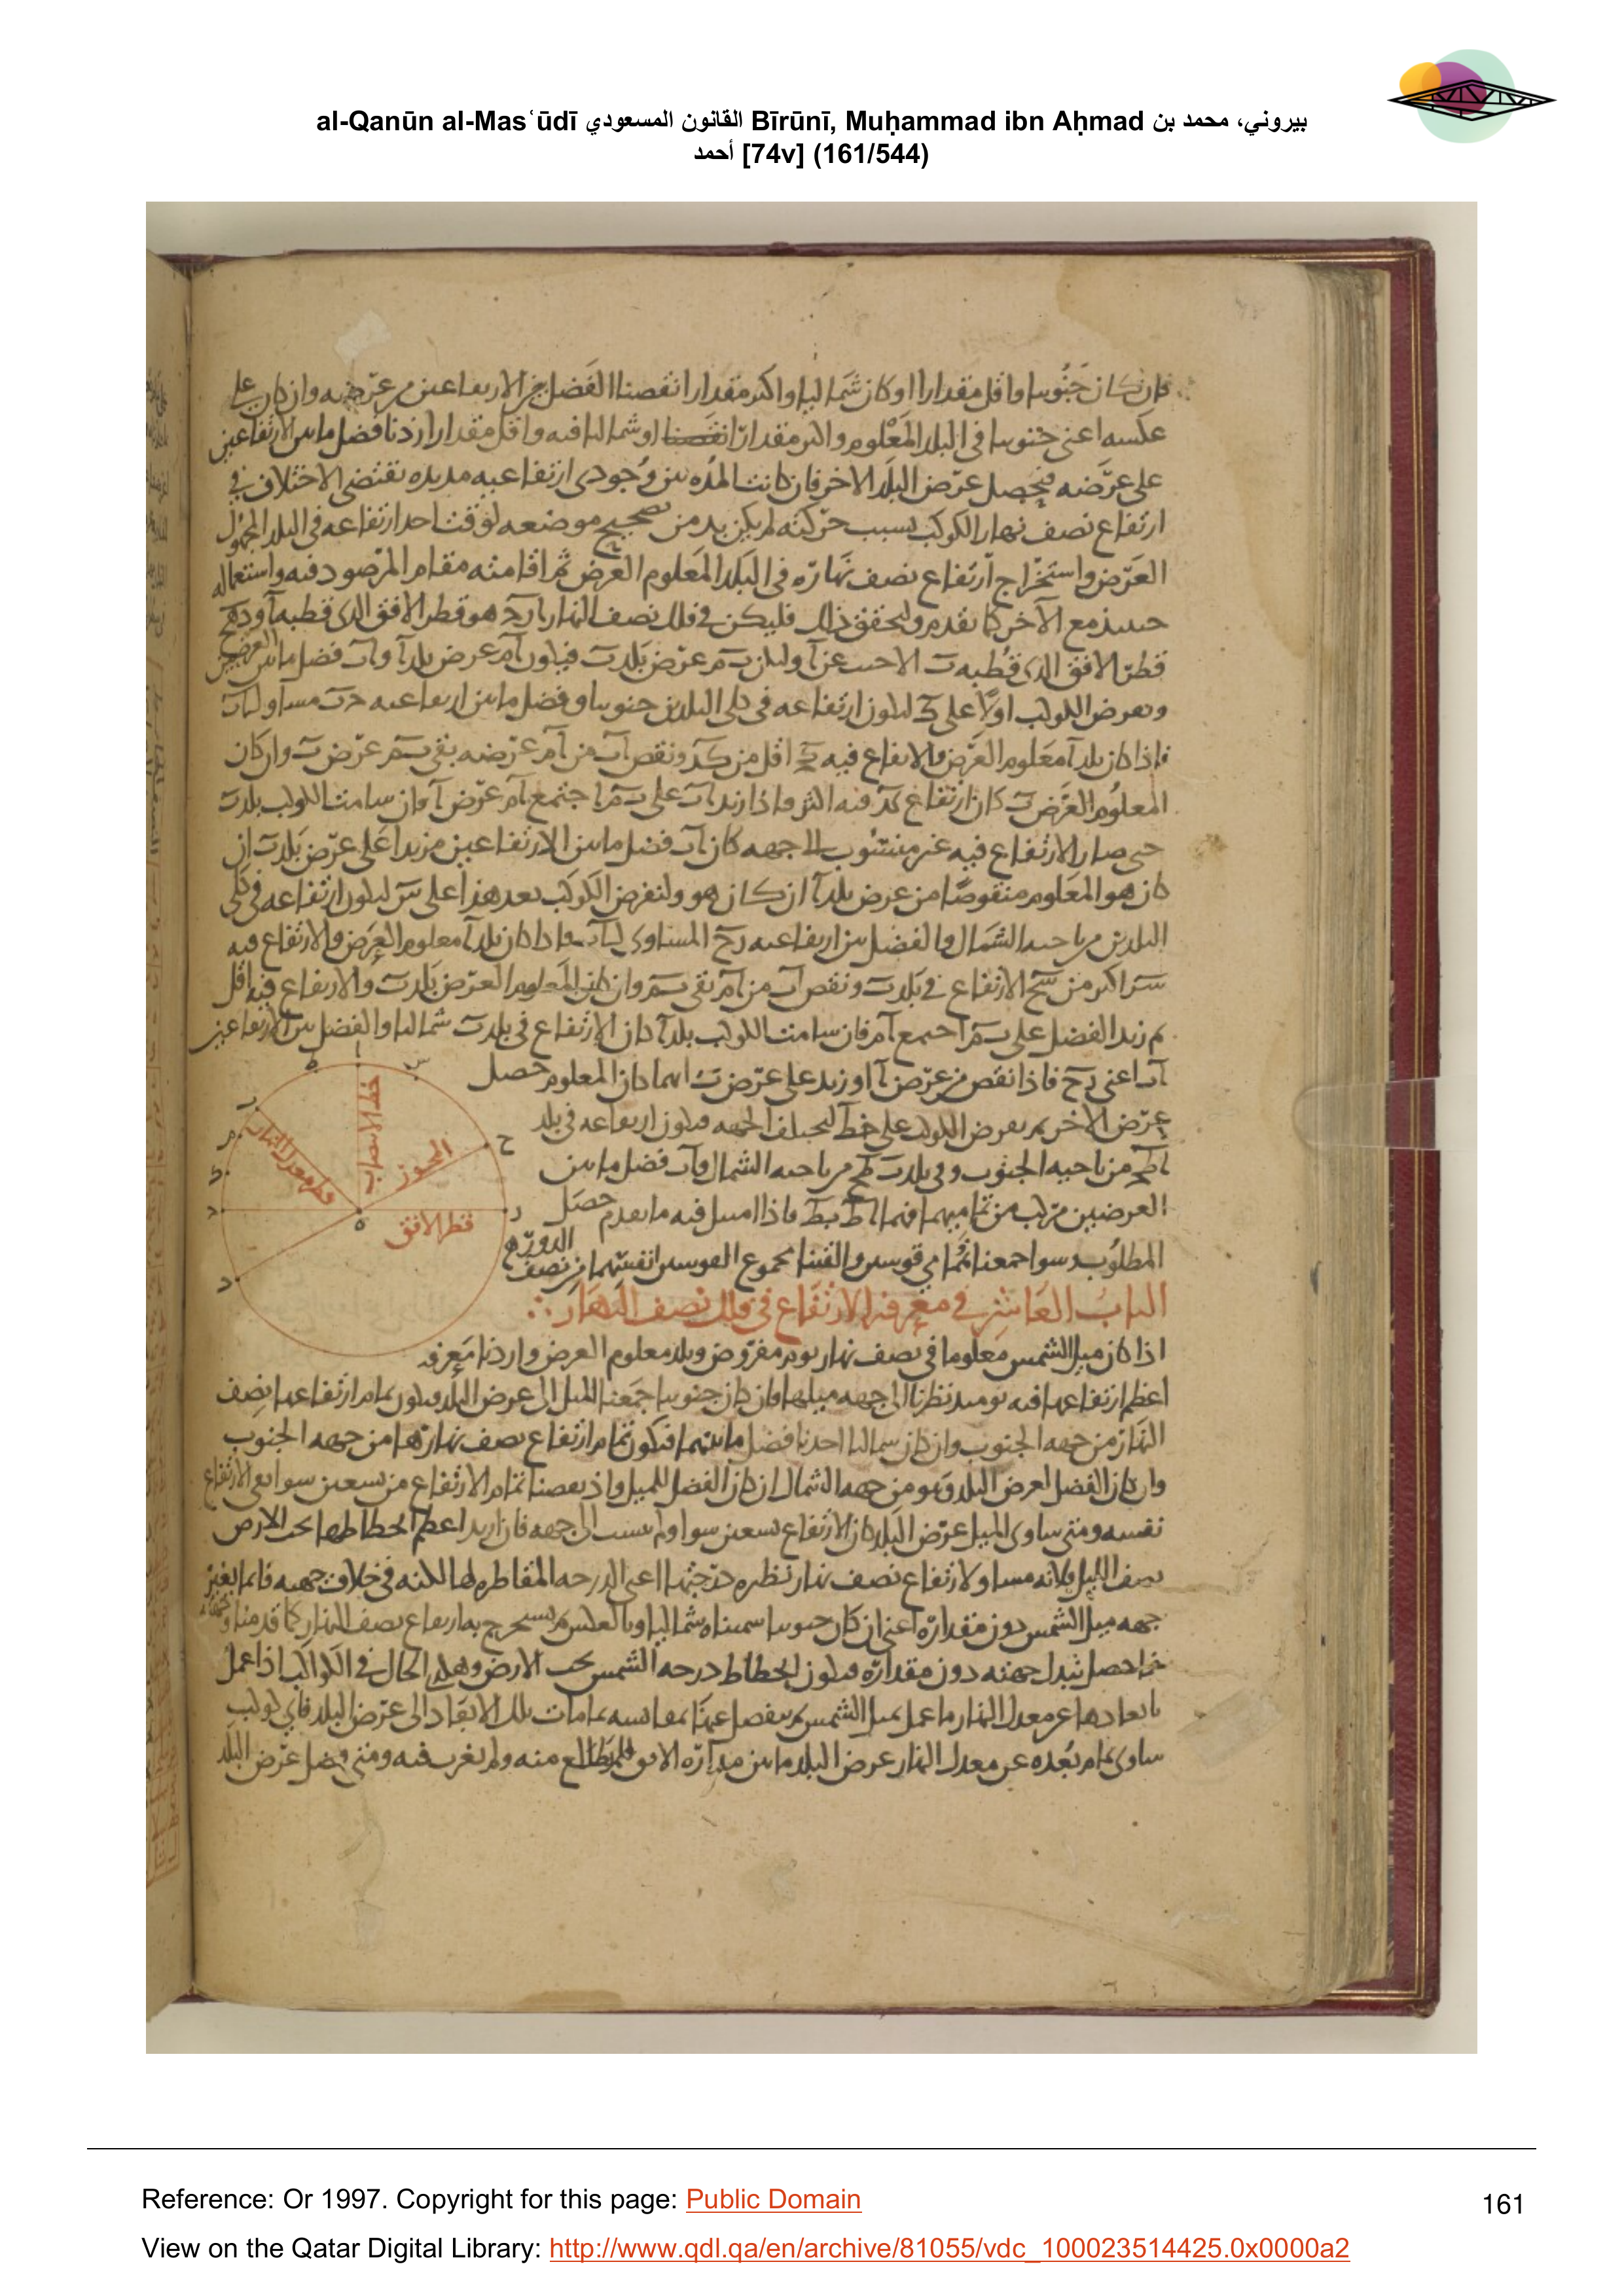 al-Qanūn al-Mas‘ūdī القانون المسعودي Bīrūnī, Muḥammad ibn Aḥmad بيروني، محمد بن
أحمد [74v] (161/544)
فان كان جنوبيا واقل مقدارا او كان شماليا واكثر مقدارا نقصنا الفضل بين الارتفاعين من عرضه وان كان على
عكسه اعنى جنوبيا فى البلد المعلوم واكثر مقدارا او شماليا فيه واقل مقدارا زدنا فضل ما بين الارتفاعين
على عرضه فيحصل عرض البلد الاخر فان كانت المدة بين وجودى ارتفاعيه مديدة تقتضى الاختلاف فى
ارتفاع نصف نهار الكوكب بسبب حركته لم يكن بد من تصحيح موضعه لوقت احد ارتفاعه فى البلد المجهول
العرض واستخراج ارتفاع نصف نهاره فى البلد المعلوم العرض ثم اقامته مقام المرصود فيه واستعماله
حينئذ مع الآخر كما تقدم ولتحقق ذلك فليكن فى فلك نصف النهار هو قطر الافق الذى قطبه
قطر الافق الذى قطبه وليكن عرض بلد فيكون عرض بلد فضل ما بين العرضين
ونفرض الكوكب اولا على ليكون ارتفاعه فى كلى البلدين جنوبيا وفضل ما بين ارتفاعيه مساو
فاذا كان بلد معلوم العرض والارتفاع فيه اقل من ونقص من عرضه بقى عرض وان كان
المعلوم العرض كان ارتفاع فيه اكثر فاذا زيد على اجتمع عرض فان سامت الكوكب بلد
حتى صار الارتفاع فيه غير منسوب الى جهة كان فضل ما بين الارتفاعين مزيدا على عرض بلد ان
كان هو المعلوم منقوصا من عرض بلد ان كان هو ولنفرض الكوكب بعد هذا على ليكون ارتفاعه فى كلى
البلدين من ناحية الشمال والفضل بين ارتفاعيه المساوى واذا كان بلد معلوم العرض والارتفاع فيه
اكبر من الارتفاع فى بلد ونقص من بقى وان كان المعلوم العرض بلد والارتفاع فيه اقل
ثم زيد الفضل على اجتمع فان سامت الكوكب بلد كان الارتفاع فى بلد شماليا والفضل بين الارتفاعين
اعنى فاذا نقص من عرض او زيد على عرض ايهما كان المعلوم حصل
عرض الاخر ثم نفرض الكوكب على ليختلف الجهة فيكون ارتفاعه فى بلد
من ناحية الجنوب وفى بلد من ناحية الشمال فضل ما بين
العرضين مركب من تماميهما فاذا امتثل فيه ما تقدم حصل
المطلوب وسوا جمعنا تمامى قوسين والقينا مجموع القوسين انفسهما من نصف الدور
خط الانتصاب
المحور
قطر معدل النهار
قطر الافق
الباب العاشر فى معرفة الارتفاع فى فلك نصف النهار
اذا كان ميل الشمس معلوما فى نصف نهار يوم مفروض وبلد معلوم العرض واردنا معرفة
اعظم ارتفاعها فيه يومئذ نظرنا الى جهة ميلها فان كان جنوبيا جمعنا الميل الى عرض البلد فيكون تمام ارتفاعها نصف
النهار من جهة الجنوب وان كان شماليا اخذنا فضل ما بينهما فيكون تمام ارتفاع نصف نهارها من جهة الجنوب
وان كان الفضل لعرض البلد وهو من جهة الشمال ان كان الفضل للميل واذ نقصنا تمام الارتفاع من تسعين سوا بقى الارتفاع
نفسه ومتى ساوى الميل عرض البلد كان الارتفاع تسعين سوا ولم ينسب الى جهة فان اريد اعظم انحطاطها تحت الارض
نصف الليل فلانه مساو لارتفاع نصف نهار نظيرة درجتها اعنى الدرجة المقاطرة لها لكنه فى خلاف جهته فانما نغير
جهة ميل الشمس دون مقداره اعنى ان كان جنوبيا سميناه شماليا وبالعكس ثم نستخرج به ارتفاع نصف النهار كما قدمنا
فما حصل نبدل جهته دون مقداره فيكون انحطاط درجة الشمس تحت الارض وهذه الحال فى الكواكب اذا عمل
بابعادها عن معدل النهار ما عمل بميل الشمس ثم ينفصل عنها بمقايسة تمامات تلك الابعاد الى عرض البلد فاى كوكب
ساوى تمام بعده عن معدل النهار عرض البلد ماس مداره الافق فلم يطلع منه ولم يغرب فيه ومتى فضل عرض البلد
Reference: Or 1997. Copyright for this page: Public Domain
161
View on the Qatar Digital Library: http://www.qdl.qa/en/archive/81055/vdc_100023514425.0x0000a2